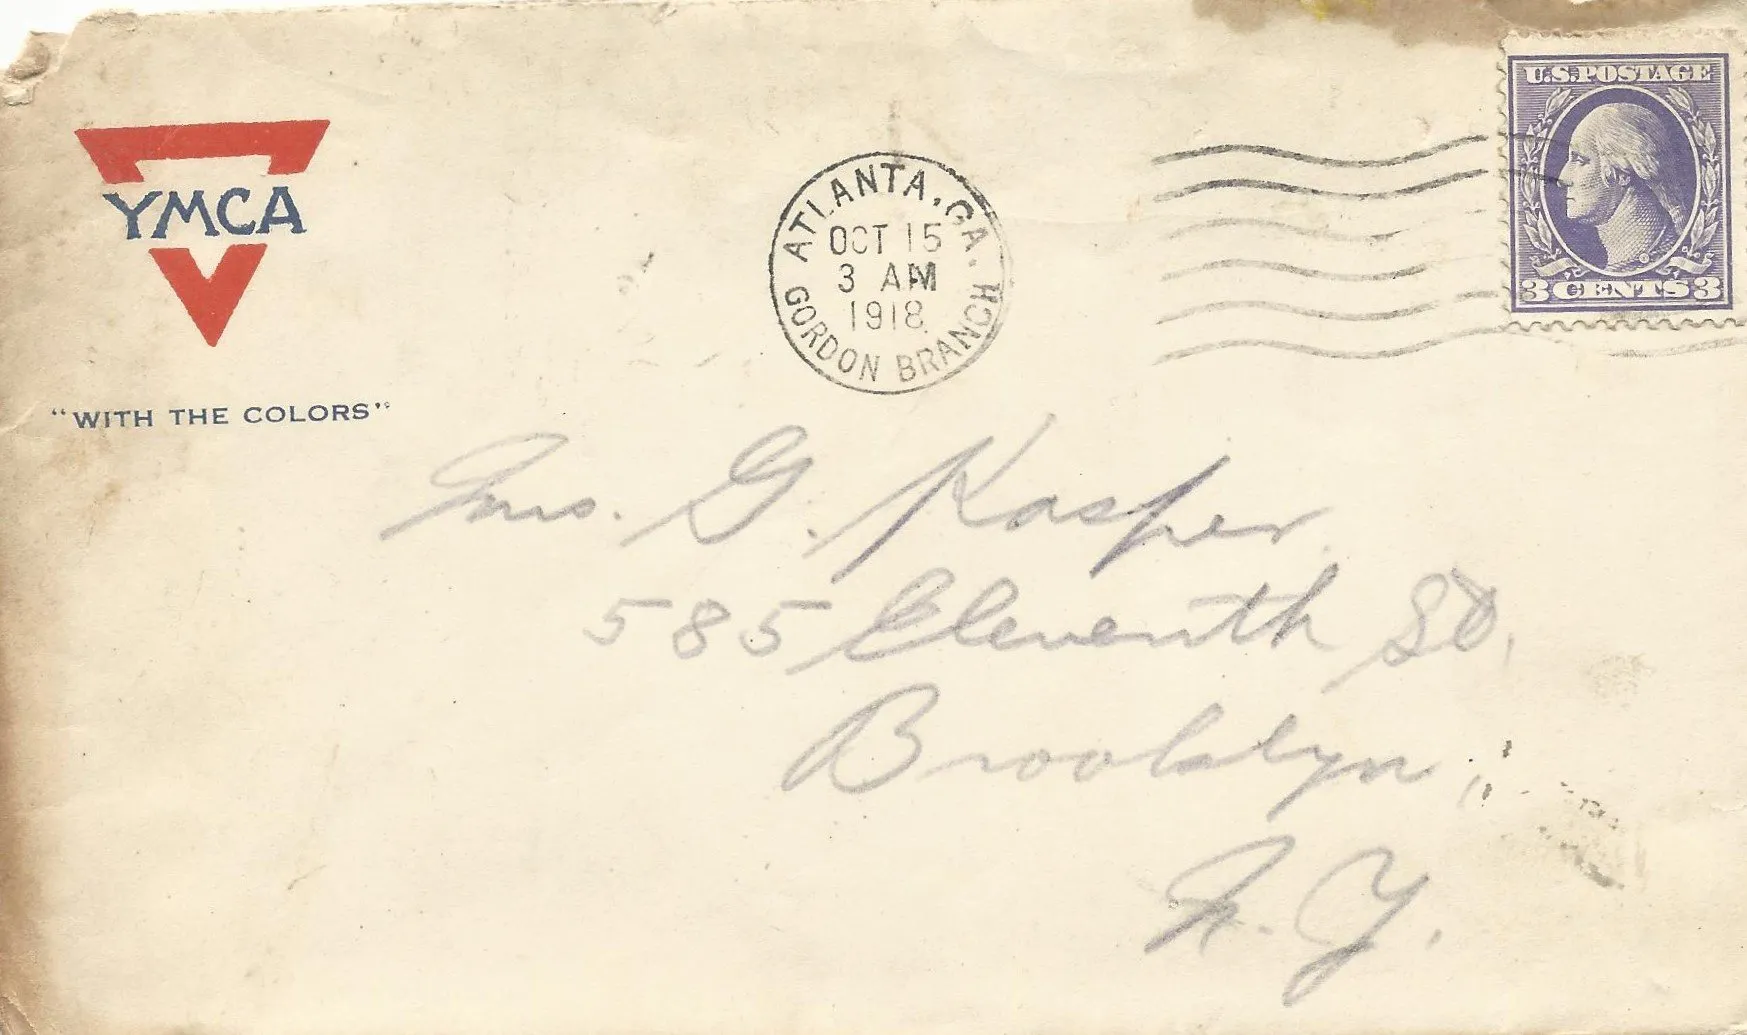 YMCA
"WITH THE COLORS"
ATLANTA, GA.
OCT 15
3 AM
1918
GORDON BRANCH
U.S. POSTAGE
3 CENTS 3
Mrs. G. Kasper
585 Eleventh St,
Brooklyn,
N. Y.